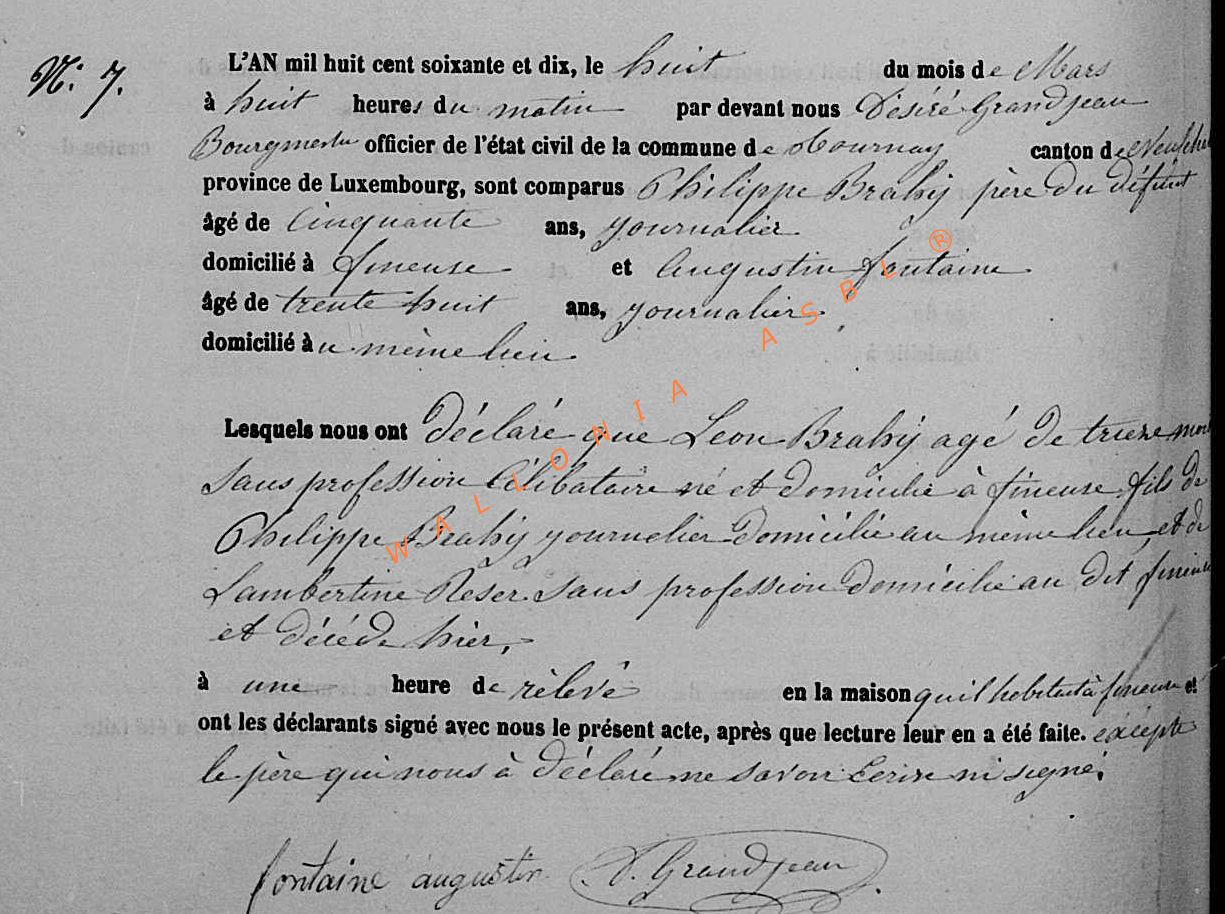 N: 7.
L'AN mil huit cent soixante et dix, le huit du mois de Mars
à huit heures du matin par devant nous Désiré Grandjean
Bourgmestre officier de l'état civil de la commune de Tournay canton de Neufchâ
province de Luxembourg, sont comparus Philippe Brahy père du défunt
âgé de Cinquante ans, journalier
domicilié à fineuse et Augustin fontaine
âgé de trente huit ans, journalier
domicilié au même lieu
Lesquels nous ont déclaré que Léon Brahy agé de treize mois
sans profession Célibataire né et domicilié à fineuse, fils de
Philippe Brahy journalier domicilié au même lieu, et de
Lambertine Reser sans profession domicilié au dit fineuse
et décédé hier,
à une heure de rélevé en la maison qu'il habitait à fineuse et
ont les déclarants signé avec nous le présent acte, après que lecture leur en a été faite. excepté
le père qui nous à déclaré ne savoir écrire ni signé.
fontaine augustin D. Grandjean
WALLONIA ASBL ®